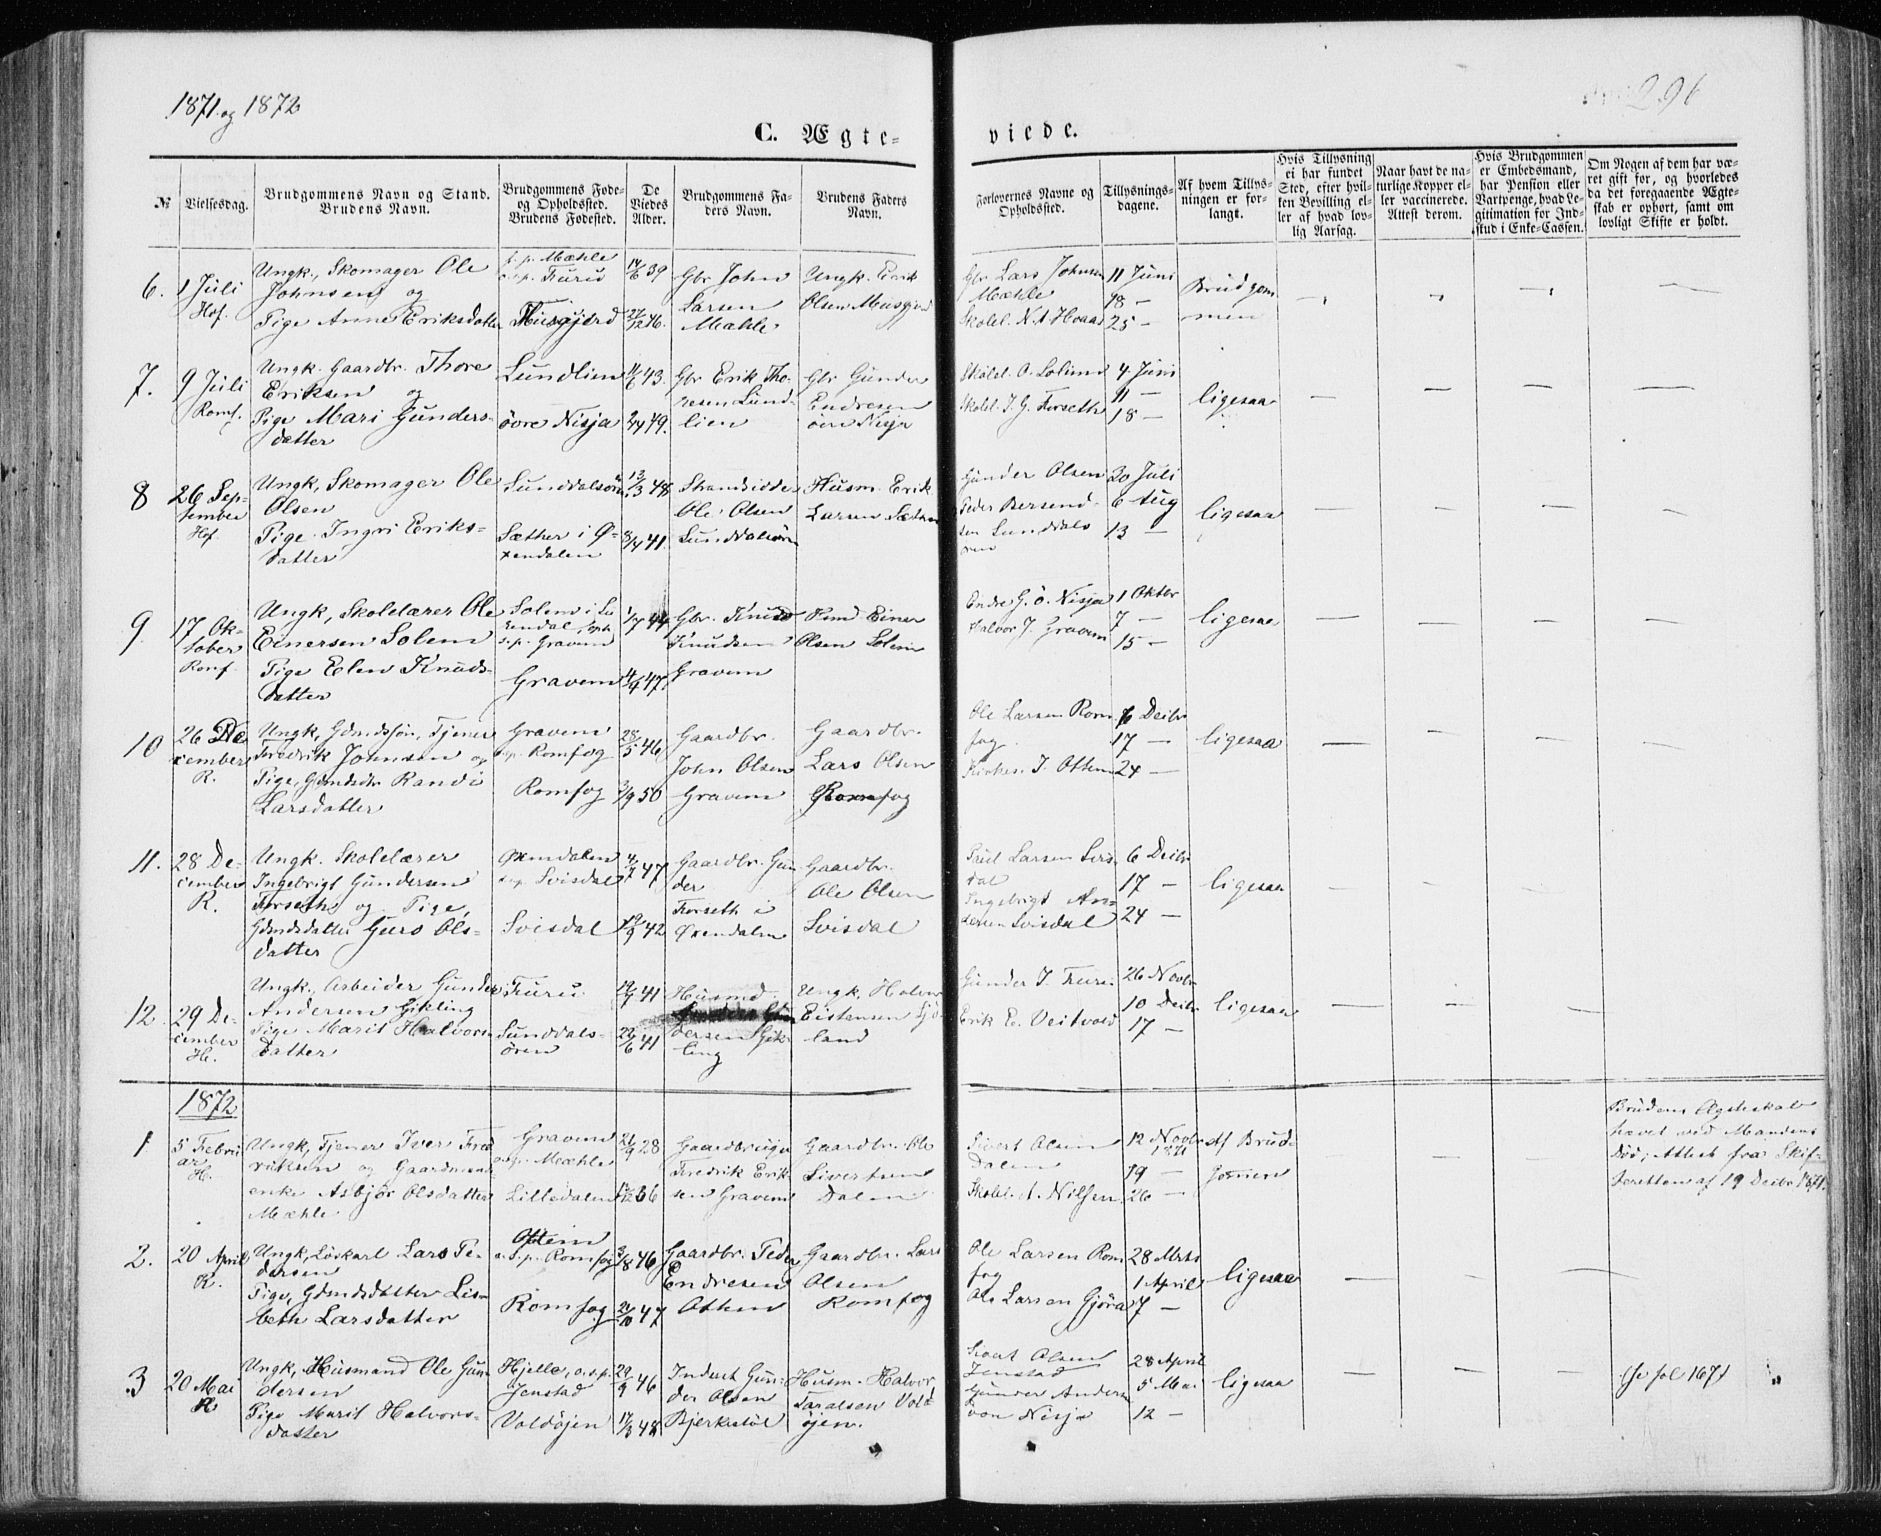 1871 og 1872
296
C. Ægte-
viede.
№
Vielsesdag.
Brudgommens Navn og Stand.
Brudens Navn.
Brudgommens Føde-
og Opholdssted.
Brudens Fødested.
De
Viedes
Alder.
Brudgommens Fa-
ders Navn.
Brudens Faders
Navn.
Forlovernes Navne og
Opholdssted.
Tillysnings-
dagene.
Af hvem Tillys-
ningen er for-
langt.
Hvis Tillysning
ei har fundet
Sted, efter hvil-
ken Bevilling el-
ler af hvad lov-
lig Aarsag.
Naar havt de na-
turlige Kopper el-
ler vaccinerede.
Attest derom.
Hvis Brudgommen
er Embedsmand,
har Pension eller
Vartpenge, hvad Le-
gitimation for Ind-
skud i Enke-Cassen.
Om Nogen af dem har væ-
ret gift før, og hvorledes
da det foregaaende Ægte-
skab er ophørt, samt om
lovligt Skifte er holdt.
6.
1 Juli
Hof.
Ungk., Skomager Ole
Johnsen og
Pige Anne Eriksdatter
Mæhle
Furu
Musgjerd
14/6 39
27/12 46.
Gbr John
Larsen
Mæhle
Ungk. Erik
Olsen Musgjerd
Gbr Lars Johnsen
Mæhle
Skolel. N. A Hoaas
11 Juni
18 —
25 —
Brudgom
men
7.
9 Juli
Romf.
Ungk. Gaardbr. Thore
Eriksen og
Pige Mari Gunders-
datter
Lundlien
övre Nisja
11/6 43.
2/4 49.
Gbr Erik Tho-
resen Lund-
lien
Gbr Gunder
Endresen
övre Nisja
Skolel. O. Solund
Skolel. I. G. Forseth
4 Juni
11 —
18 —
ligesaa
8
26 Sep-
tember
Hof.
Ungk, Skomager Ole
Olsen
Pige Ingri Eriks-
datter
Sunddalsören
Sæther i Ø-
xendalen
13/3 48
8/4 41.
Strandsidder
Ole Olsen
Sunddalsören
Husm. Erik
Larsen Sæther
Gunder Olsen
Peder Bersend-
sen Sunddals
ören
30 Juli
6 Aug
13 —
ligesaa
9.
17 Ok-
tober
Romf.
Ungk, Skolelærer Ole
Einersen Solem
Pige Elen Knuds-
datter
Solem i
Gravem
Gravem
1/7 44
4/4 47.
Gbr. Knud
Knudsen
Gravem
Einer
Olsen Solem
Endre G. ö. Nisja
Halvor J. Gravem
1 Oktbr
7 —
15 —
ligesaa
10
26 De
cember
R.
Ungk, Gdmdssön, Tjener
Fredrik Johnsen og
Pige, Gdmdsdtr Randi
Larsdatter
Gravem
Romfog
Romfog
28/5 46
2/9 50
Gaardbr.
John Olsen
Gravem
Gaardbr.
Lars Olsen
Romfog
Ole Larsen Rom
fog.
Kirkes. I. Otten
6 Deibr
17 —
24 —
ligesaa
11.
28 De-
cember
R.
Ungk. Skolelærer
Ingebrigt Gundersen
Forseth og Pige,
Gdmdsdatter Guro Ols-
datter
Øxendalen
Svisdal
Svisdal
4/7 47
19/9 42
Gaardbr. Gun
der
Forseth i
Øxendalen
Gaardbr.
Ole Olsen
Svisdal
Paul Larsen Svis
dal
Ingebrigt An-
dersen Svisdal
6 Deibr
17 —
24 —
ligesaa
12.
29 De-
cember
H.
Ungk., Arbeider Gunder
Andersen Gikling
Pige Marit Halvors
datter
Furu
Sunddals-
ören
19/7 41
22/6 41
Husmd
Gun
dersen Gik-
ling
Ungk, Halvor
Eistensen
land
Gunder I. Furu
Erik E. Veitvold
26 Novbr
10 Deibr
17 —
ligesaa
1872
1
5 Febru
ar
H.
Ungk, Tjener Iver Fred
riksen og Gaardmand
enke Asbjör Olsdatter
Mæhle
Gravem
Mæhle
Lilledalen
21/9 28
36
Gaardbruger
Fredrik Erik
sen Gravem
Gaardbr. Ole
Sivertsen
Dalen
Sivert Olsen
Dalen
Skolel. A. Nilsen
12 Novbr
1871
19 —
26 —
Af Brud-
gommen
Brudens Ægteskab
hævet ved Mandens
Död; Attest fra Skif-
teretten af 19 Deibr 1871.
2.
20 April
R.
Ungk, Löskarl Lars Pe-
dersen
Pige, Gdmdsdatter Lis-
beth Larsdatter
Ottem
o. s. p. Romfog
Romfog
3/8 46
21/10 47
Gaardbr. Peder
Endresen
Otten
Gaardbr. Lars
Olsen
Romfog
Ole Larsen Rom
fog
Ole Larsen Gjöra
28 Mrts
1 April
7 —
ligesaa
3
20 Mai
R
Ungk, Husmand Ole Gun
dersen
Pige Marit Halvors-
datter
Hjelle, o.s.p.
Jenstad
Voldöjen
29/9 46
17/3 48
Inderst Gun-
der Olsen
Bjerkeslöl
Husm. Halvor
Taralsen Vold
öjen.
Sivert Olsen
Jenstad
Gunder Anders
Nisja
28 April
5 Mai
12 —
ligesaa
(Se fol 167)